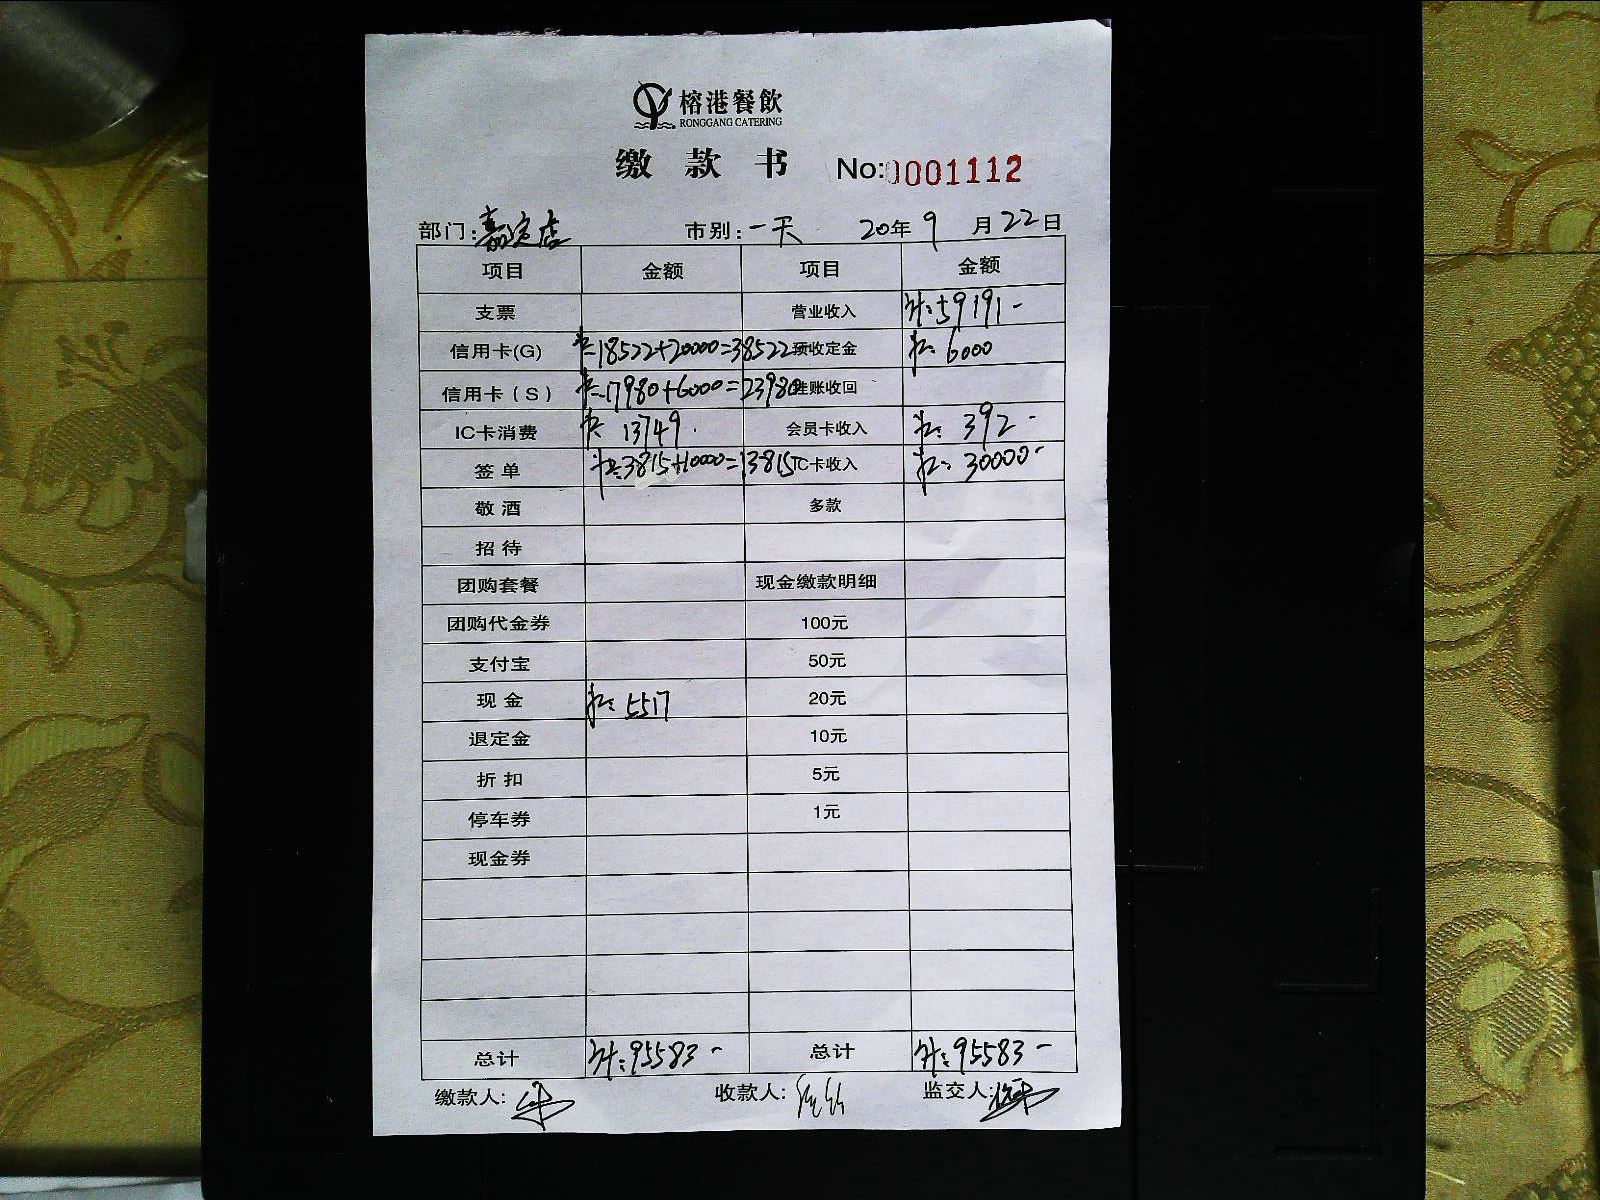 榕港餐飲
RONGGANG CATERING
缴款书 No:0001112
部门:嘉定店 市别:一天 20年9月22日
项目 金额 项目 金额
支票 营业收入 计:59191-
信用卡(G) 18522+20000=38522 预收定金 6000
信用卡(S) 17980+6000=23980 挂账收回
IC卡消费 13749. 会员卡收入 392-
签单 3815+10000=13815 IC卡收入 30000-
敬酒 多款
招待
团购套餐 现金缴款明细
团购代金券 100元
支付宝 50元
现金 5517 20元
退定金 10元
折扣 5元
停车券 1元
现金券
总计 计:95583- 总计 计:95583-
缴款人: 收款人: 监交人: